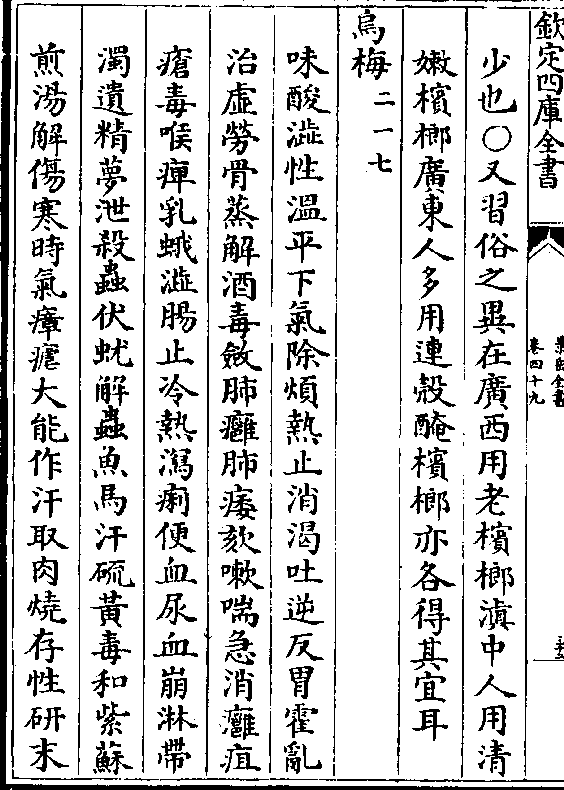 欽定四庫全書
景岳全書
卷四十九
少也〇又習俗之異在廣西用老檳榔滇中人用清
嫩檳榔廣東人多用連殼醃檳榔亦各得其宜耳
烏梅二一七
味酸澁性溫平下氣除煩熱止消渴吐逆反胃霍亂
治虛勞骨蒸解酒毒斂肺癰肺痿欬嗽喘急消癰疽
瘡毒喉痺乳蛾澁腸止冷熱瀉痢便血尿血崩淋帶
濁遺精夢泄殺蟲伏蚘解蟲魚馬汗硫黃毒和紫蘇
煎湯解傷寒時氣瘴瘧大能作汗取肉燒存性研末